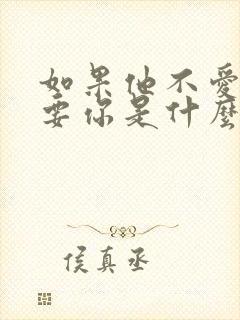 如果他不愛
要你是什麼
侯真丞